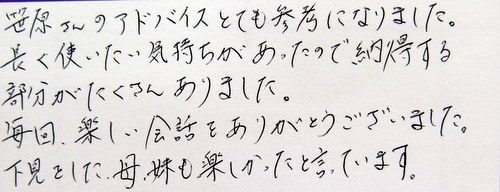 笹原さんのアドバイスとても参考になりました。
長く使いたい気持ちがあったので納得する
部分がたくさんありました。
毎回、楽しい会話をありがとうございました。
下見をした、母、妹も楽しかったと言っています。